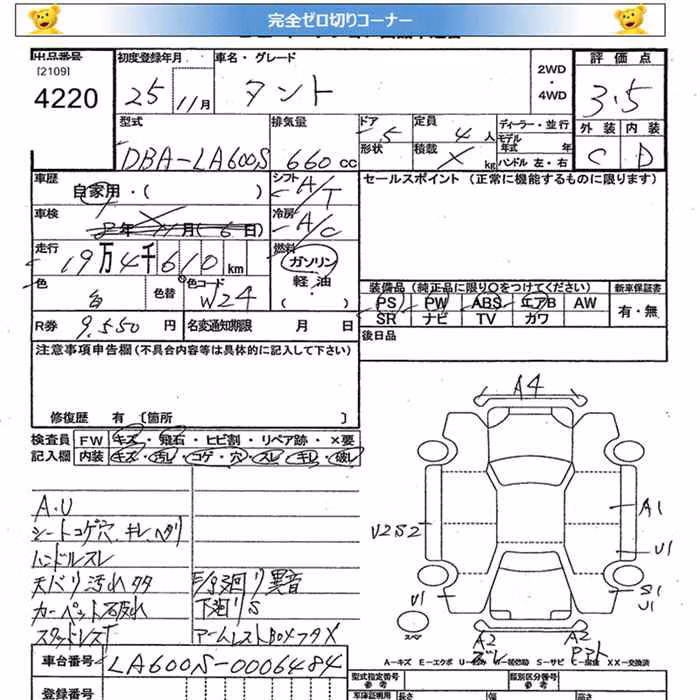 完全ゼロ切りコーナー
出品番号 初度登録年月 車名・グレード 評価点
[2109]
4220 25 11月 タント 2WD・4WD 3.5
型式 排気量 ドア 5 定員 4人 ディーラー・並行 外装 内装
モデル年式 年
DBA-LA600S 660cc 形状 積載 X kg ハンドル 左・右 C D
車歴 シフト A/T セールスポイント(正常に機能するものに限ります)
自家用・( )
車検 冷房 A/C
年 月( 日)
走行 燃料
19万4千610km ガソリン
色 白 色替 色コード W24 軽油
・( )
装備品(純正品に限り○をつけてください) 新車保証書
PS PW ABS エアB AW 有・無
SR ナビ TV カワ
R券 9.550円 名変通知期限 月 日
後日品
注意事項申告欄(不具合内容等は具体的に記入して下さい)
修復歴 有 [箇所 ]
検査員 FW キズ・飛石・ヒビ割・リペア跡・×要
記入欄 内装 キズ・汚レ・コゲ・穴・スレ・キレ・破レ
A4
A1
U2S2
U1
U1
S1
U1
スペ
A2
A2
A.U
シートコゲ穴.キレ.ヘタリ
ハンドルスレ
天バリ汚れ タタ
カーペット破れ
スタッドレスT
F/S廻り異音
下廻りS
アームレストBOXフタX
A-キズ E-エクボ S-サビ XX-交換済
車台番号 LA600S-0006484
登録番号
型式指定番号 類別区分番号
参考 参考
車庫証明用 長さ 幅 高さ